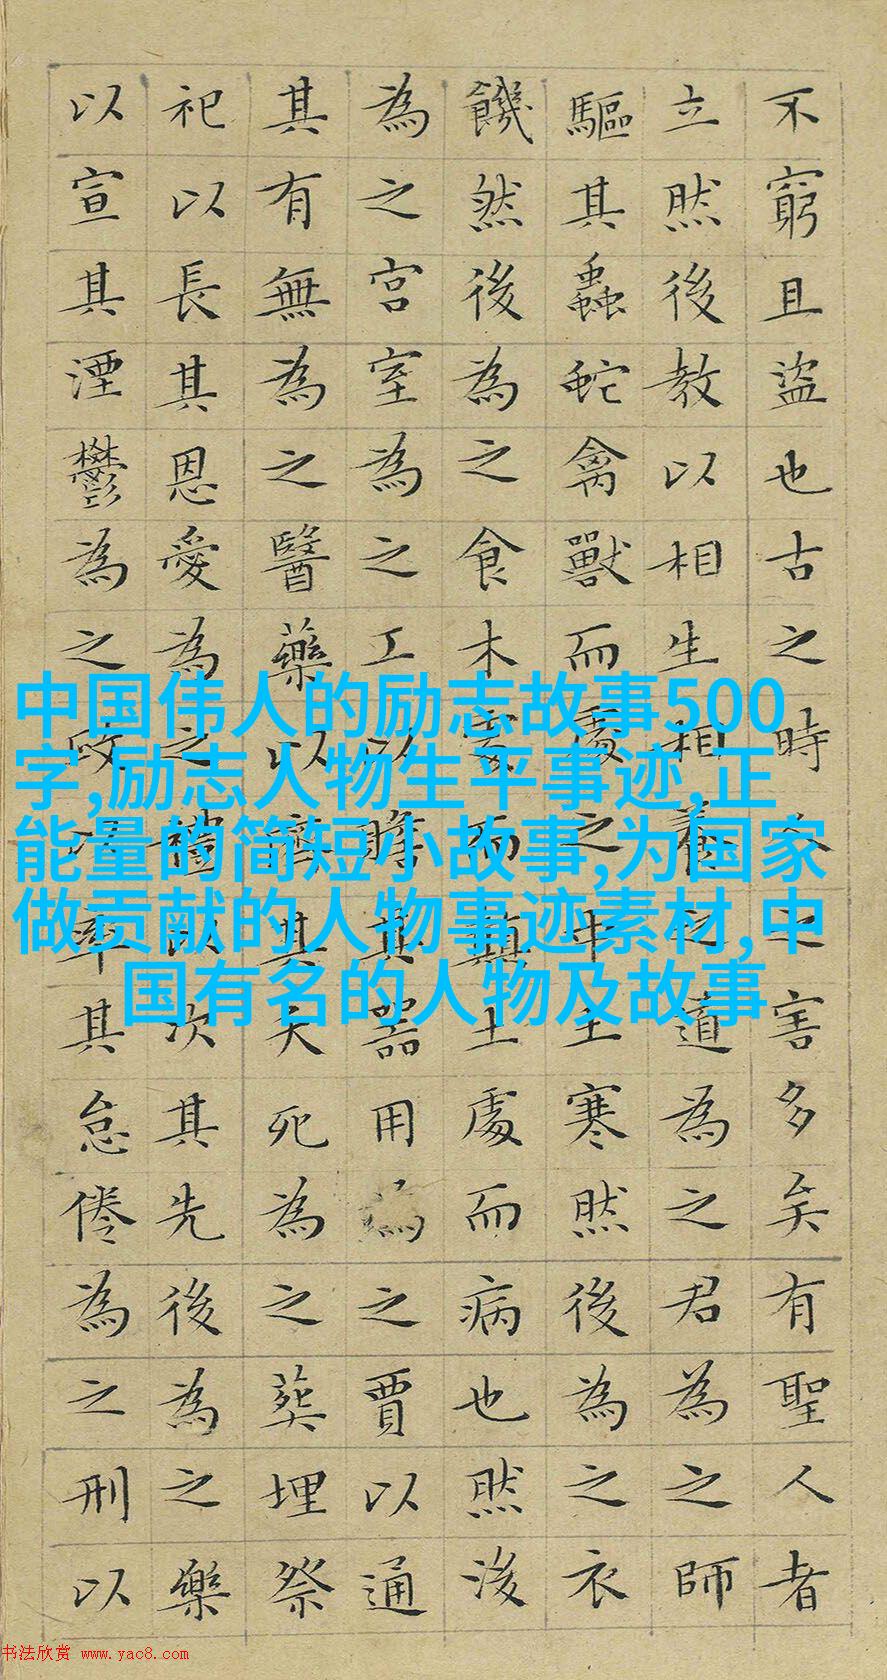 不窮且盜也古之時人之害多矣有聖人者
立然後教以相生相養之道為之君為之師
驅其蟲蛇禽獸而處之中土寒然後為之衣
饑然後為之食木處而顛土處而病也然後
為之宮室為之工以贍其器用為之賈以通
其有無為之醫藥以濟其夭死為之葬埋祭
祀以長其恩愛為之禮以次其先後為之樂
以宣其湮鬱為之政以率其怠倦為之刑以
中国伟人的励志故事500
字,励志人物生平事迹,正
能量的简短小故事,为国家
做贡献的人物事迹素材,中
国有名的人物及故事
书法欣赏 www.yac8.com